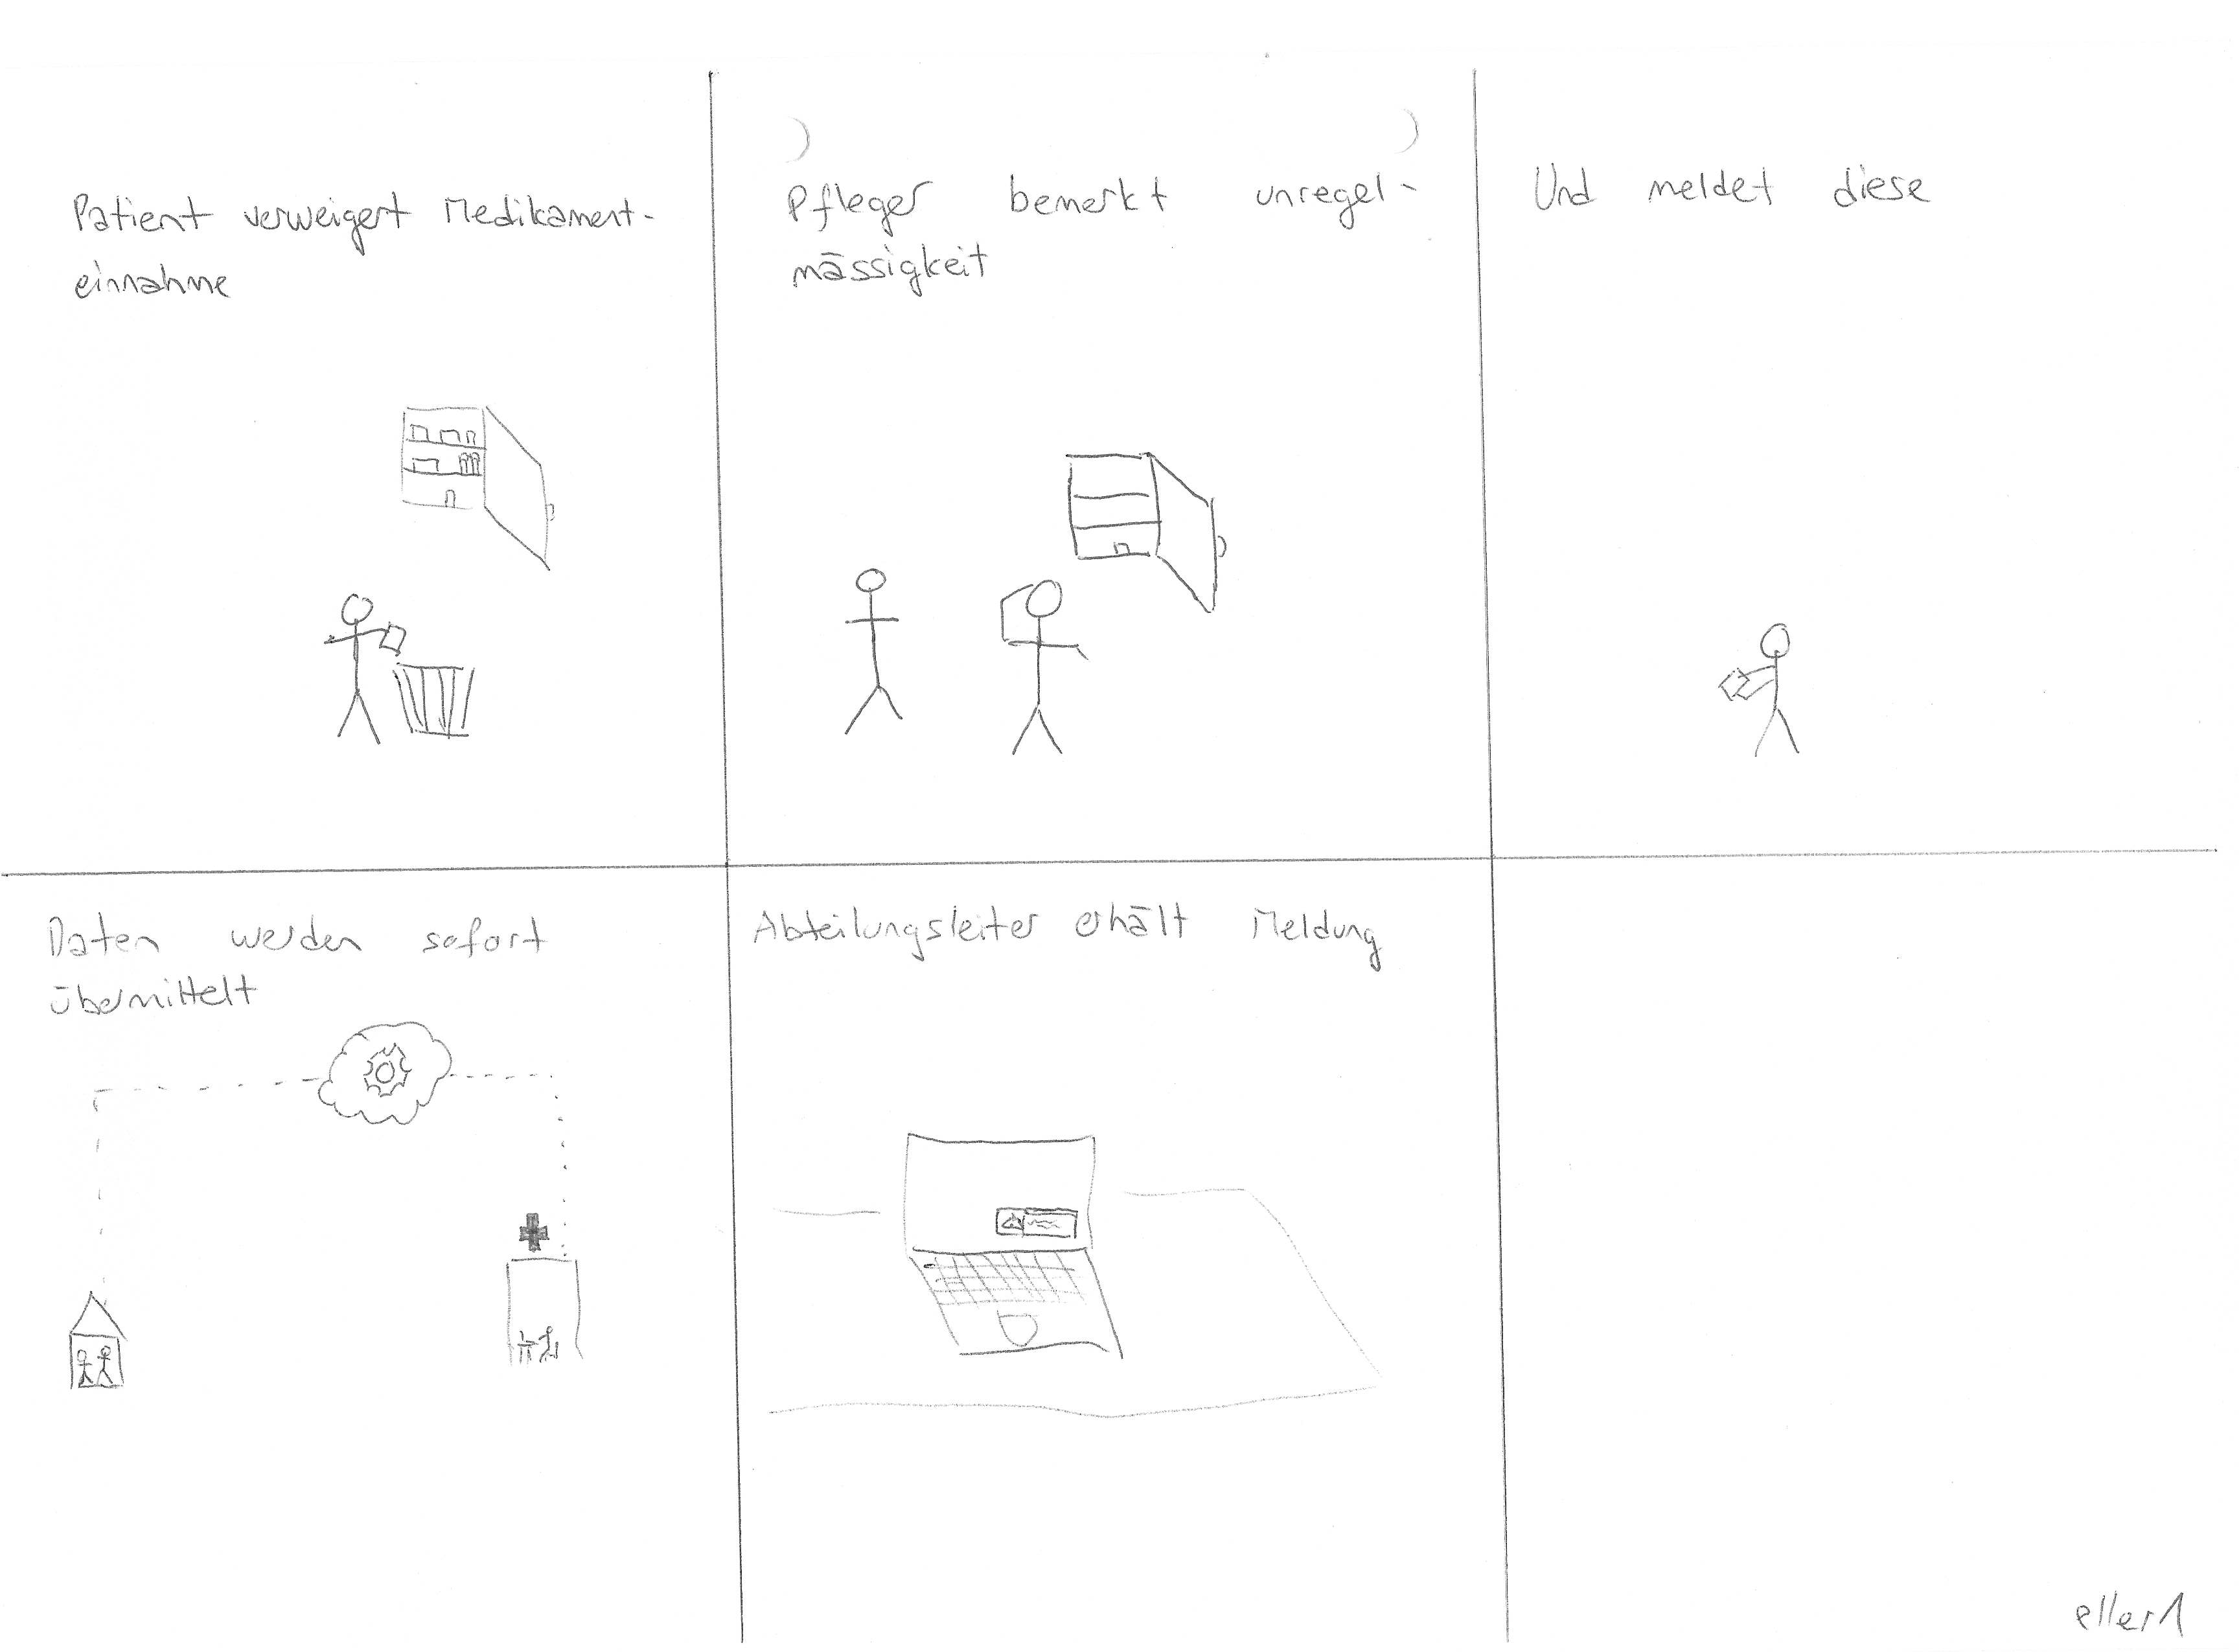 Patient verweigert Medikament-
einnahme
Pfleger bemerkt unregel-
mässigkeit
Und meldet diese
Daten werden sofort
übermittelt
Abteilungsleiter erhält Meldung
eller1